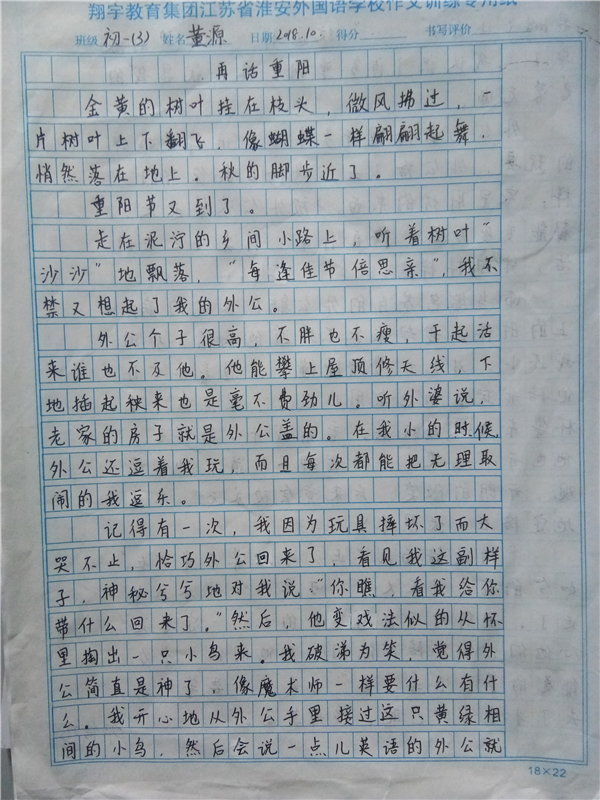 翔宇教育集团江苏省淮安外国语学校作文训练专用纸
班级 初一(3) 姓名 董源 日期 2018.10. 得分 书写评价
再话重阳
金黄的树叶挂在枝头，微风拂过，一
片树叶上下翻飞，像蝴蝶一样翩翩起舞，
悄然落在地上。秋的脚步近了。
重阳节又到了。
走在泥泞的乡间小路上，听着树叶“
沙沙”地飘落，“每逢佳节倍思亲”，我不
禁又想起了我的外公。
外公个子很高，不胖也不瘦，干起活
来谁也不及他。他能攀上屋顶修天线，下
地插起秧来也是毫不费劲儿。听外婆说，
老家的房子就是外公盖的。在我小的时候，
外公还逗着我玩，而且每次都能把无理取
闹的我逗乐。
记得有一次，我因为玩具摔坏了而大
哭不止，恰巧外公回来了，看见我这副样
子，神秘兮兮地对我说：“你瞧，看我给你
带什么回来了。”然后，他变戏法似的从怀
里掏出一只小鸟来。我破涕为笑，觉得外
公简直是神了，像魔术师一样要什么有什
么。我开心地从外公手里接过这只黄绿相
间的小鸟，然后会说一点儿英语的外公就
18×22